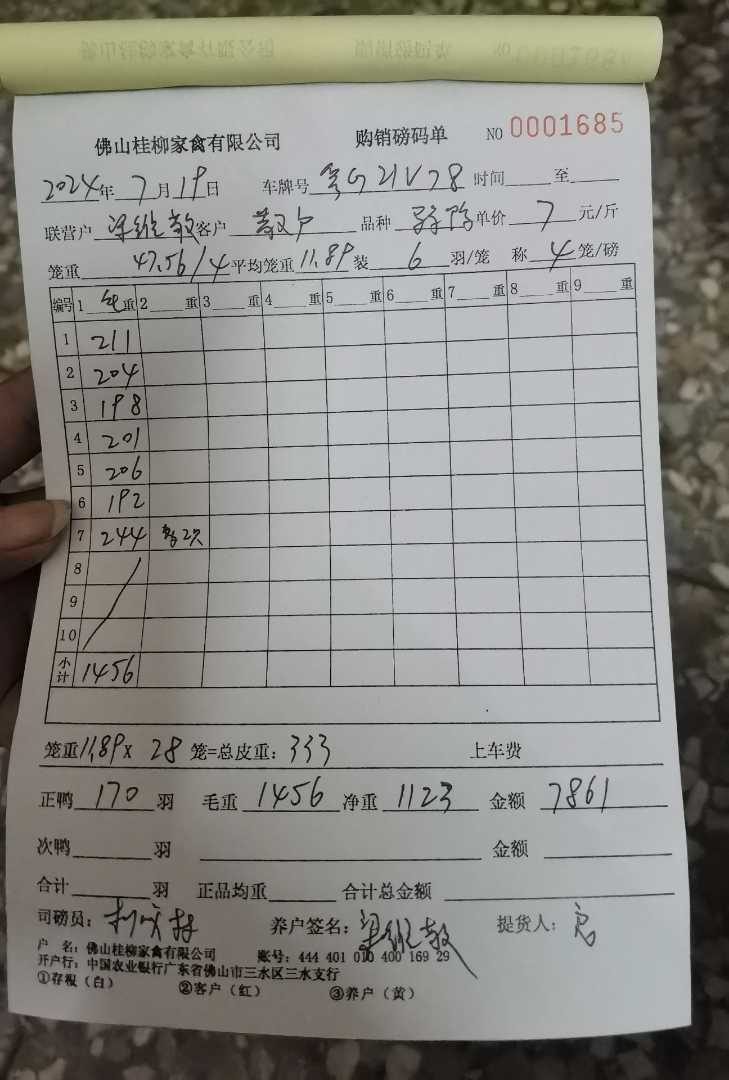 佛山桂柳家禽有限公司 购销磅码单 NO 0001685
2024年 7月19日 车牌号 粤G21V78 时间 至
联营户 梁维敬 客户 散户 品种 单价 7 元/斤
笼重 47.56/4 平均笼重 11.89 装 6 羽/笼 称 4 笼/磅
编号 1 毛重 2 重 3 重 4 重 5 重 6 重 7 重 8 重 9 重
1 211
2 204
3 198
4 201
5 206
6 192
7 244 2只
8
9
10
小计 1456
笼重 11.89 x 28 笼=总皮重: 333 上车费
正鸭 170 羽 毛重 1456 净重 1123 金额 7861
次鸭 羽 金额
合计 羽 正品均重 合计总金额
司磅员: 养户签名: 梁维敬 提货人:
户 名: 佛山桂柳家禽有限公司 账号: 444 401 010 400 169 29
开户行: 中国农业银行广东省佛山市三水区三水支行
①存根(白) ②客户(红) ③养户(黄)